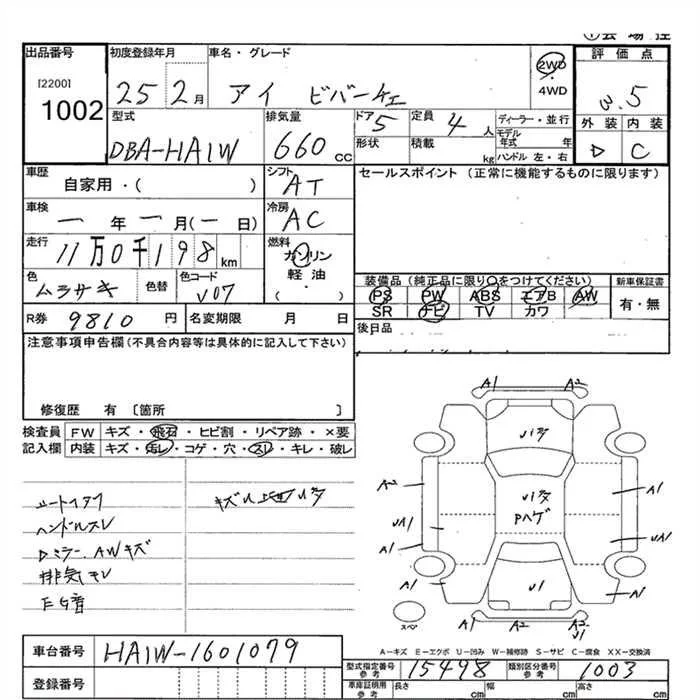 出品番号
[2200]
1002
初度登録年月
25 2月
車名・グレード
アイ ビバーチェ
2WD
・
4WD
評価点
3.5
外装 内装
D C
型式
DBA-HA1W
排気量
660 cc
ドア 5
形状
定員 4 人
積載 kg
ディーラー・並行
モデル年式 年
ハンドル 左・右
車歴
自家用・( )
シフト
AT
セールスポイント (正常に機能するものに限ります)
車検
一 年 一 月(一 日)
冷房
AC
走行
11万0千198 km
燃料
ガソリン
軽・油
( )
色
ムラサキ
色替
色コード
V07
装備品 (純正品に限り○をつけてください)
PS PW ABS エアB AW
SR ナビ TV カワ
新車保証書
有・無
R券 9810 円
名変期限 月 日
後日品
注意事項申告欄(不具合内容等は具体的に記入して下さい)
修復歴 有 〔箇所 〕
検査員記入欄
FW キズ・飛石・ヒビ割・リペア跡・×要
内装 キズ・汚レ・コゲ・穴・スレ・キレ・破レ
ハンドルスレ
Dミラー、AWキズ
排気モレ
EG音
A1 A2
A2
A1
UA1
A1
A1
UA1
Pハゲ
U1
A1
スペ
A1 A2 A2 A1
U1
A-キズ E-エクボ U-凹み W-補修跡 S-サビ C-腐食 XX-交換済
車台番号
HA1W-1601079
登録番号
型式指定番号
参考
15498
類別区分番号
参考
1003
車庫証明用
参考
長さ cm
幅 cm
高さ cm